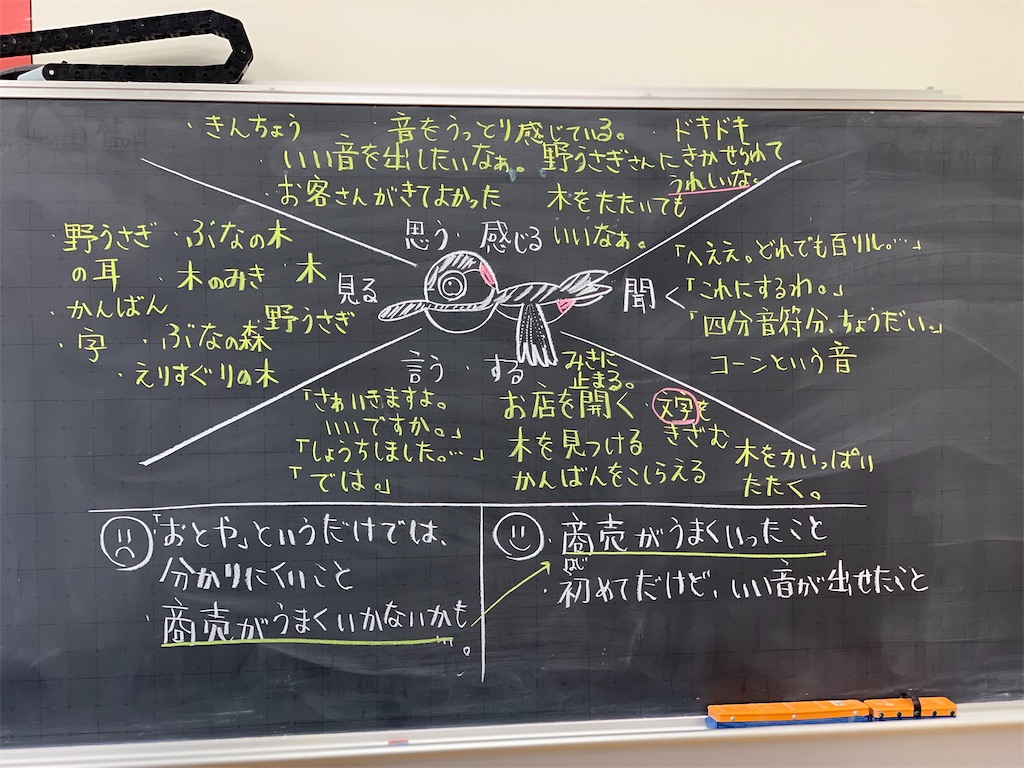 ・きんちょう
音をうっとり感じている。
ドキドキ
・いい音を出したいなぁ。
野うさぎさんにきかせられて
うれいな。
・お客さんがきてよかった
木をたたいても
いいなぁ。
思う・感じる
・野うさぎ
の耳
・ぶなの木
・木のみき
・木
・かんばん
野うさぎ
・字
・ぶなの森
・えりすぐりの木
見る
聞く
「へええ。どれでも百リル。…」
「これにするわ。」
「四分音符分、ちょうだい。」
コーンという音
言う・する
「さあいきますよ。
いいですか。」
「しょうちしました。…」
「では。」
みきに
止まる。
お店を開く
木を見つける
かんばんをこしらえる
文字を
きざむ
木を力いっぱい
たたく。
・「おとや」というだけでは、
分かりにくいこと
・商売がうまくいかないかも
…。
・商売がうまくいったこと
はじ
・初めてだけど、いい音が出せたこと